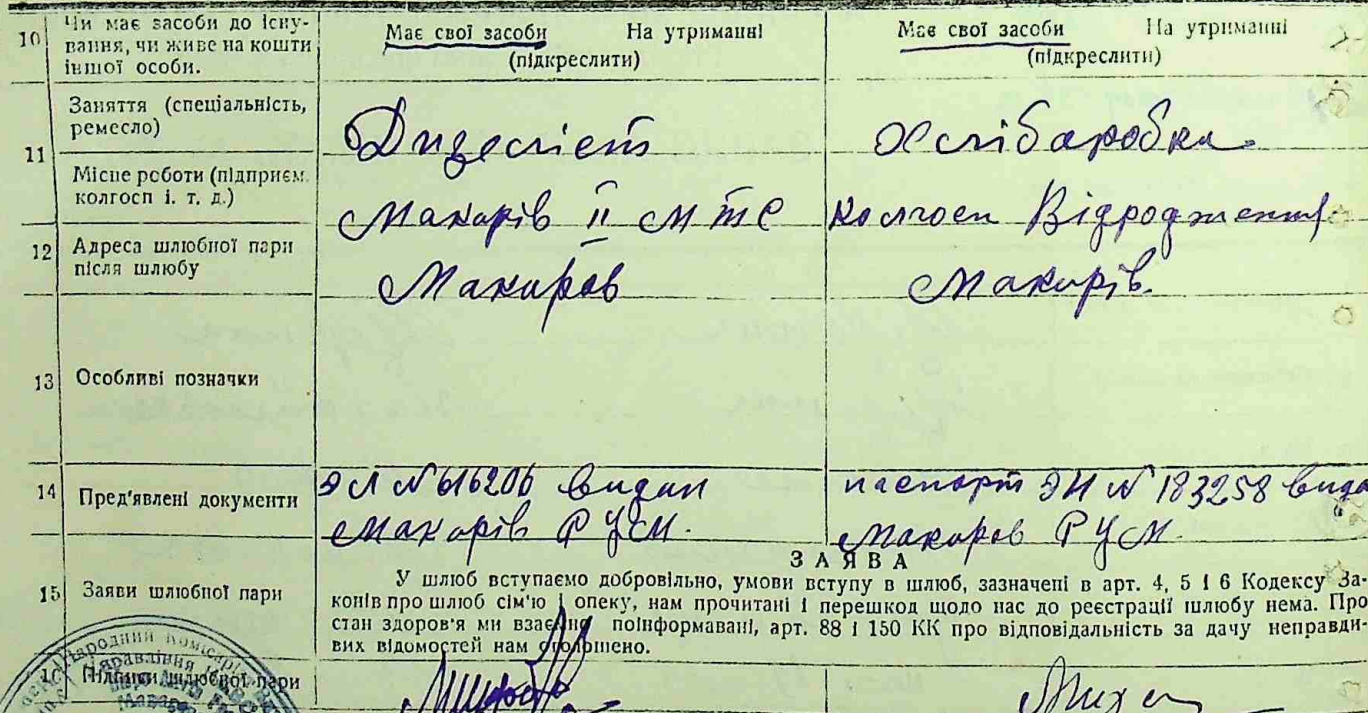 10 Чи має засоби до існування, чи живе на кошти іншої особи. Має свої засоби На утриманні (підкреслити) Має свої засоби На утриманні (підкреслити)
11 Заняття (спеціальність, ремесло) Дизеліст Хліборобка
Місце роботи (підприєм. колгосп і. т. д.) Макарів II МТС Колгосп Відродження
12 Адреса шлюбної пари після шлюбу Макаров Макарів.
13 Особливі позначки
14 Пред'явлені документи ЭЛ № 616206 видан Макарів РУМ. паспорт ЭН № 183258 вида Макаров РУМ.
ЗАЯВА
15 Заяви шлюбної пари
У шлюб вступаємо добровільно, умови вступу в шлюб, зазначені в арт. 4, 5 і 6 Кодексу За-
конів про шлюб сім'ю і опеку, нам прочитані і перешкод щодо нас до реєстрації шлюбу нема. Про
стан здоров'я ми взаємно поінформавані, арт. 88 і 150 КК про відповідальність за дачу неправди-
вих відомостей нам оголошено.
16 Підписи шлюбної пари
Народний Комісаріат
Управління